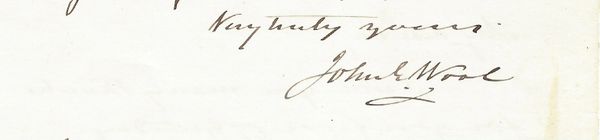 Very truly yours
John E. Wool